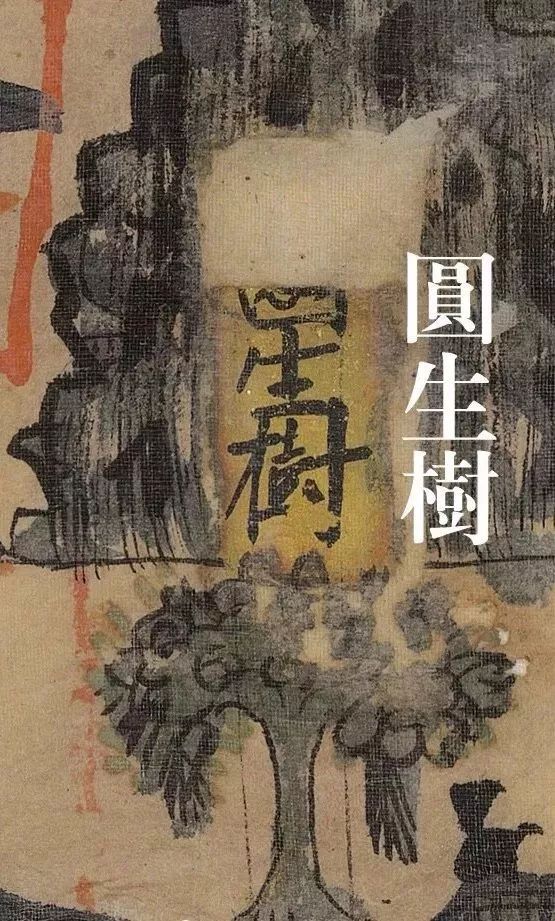 圓生樹
生樹